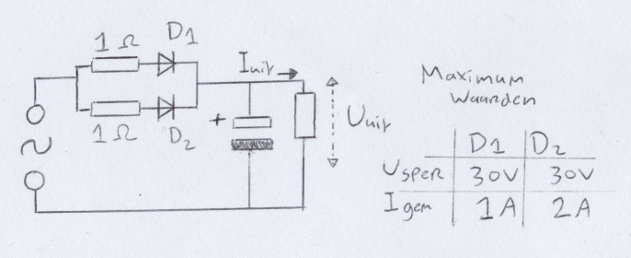 D1
1 Ω
Iuit
1 Ω
D2
+
Uuit
Maximum
Waarden
D1 D2
USPER 30V 30V
I gem 1A 2A